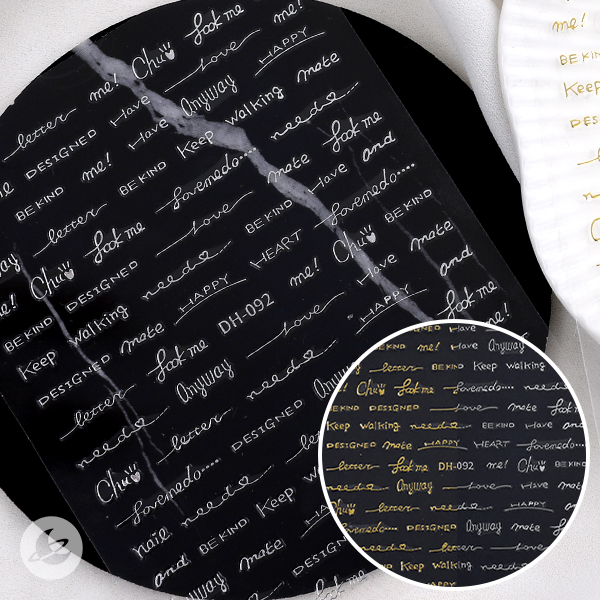 letter me! Chu Look me
DESIGNED Have Love me!
BE KIND me! Have Anyway HAPPY
letter BE KIND Keep walking mate
Chu Look me Lovemedo.... need
BE KIND DESIGNED Love mate Look me
Keep walking need BE KIND Have and
DESIGNED mate HAPPY HEART Lovemedo....
letter Look me DH-092 me! Chu BE KIND
need Anyway Love Have mate
Chu letter need HAPPY and
Lovemedo.... DESIGNED Look me
nail need me!
and BE KIND Keep
Anyway mate HAPPY
me!
BE KIND
Keep
DESIGNED Have
BE KIND me! Have Anyway
letter BE KIND Keep walking
Chu Look me Lovemedo.... need
BE KIND DESIGNED Love mate Look
Keep walking need BE KIND Have and
DESIGNED mate HAPPY HEART Lovemedo....
letter Look me DH-092 me! Chu BE KIND
need Anyway Love Have
Chu letter need HAPPY and
Lovemedo.... DESIGNED Anyway mate
need letter Love
BE KIND Keep walking need
HAPPY